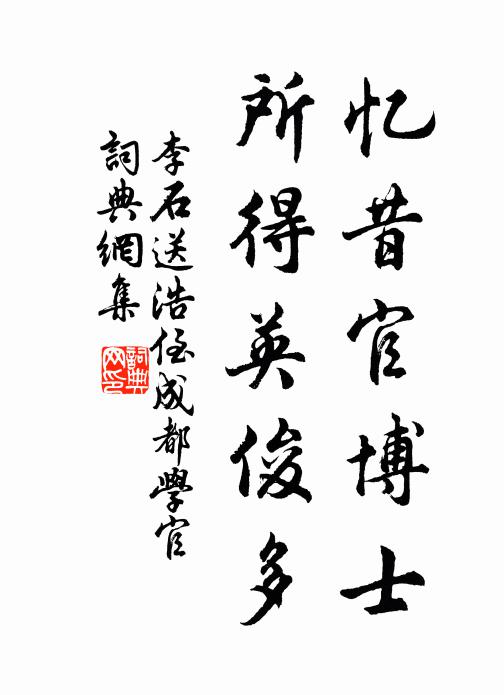 忆昔官博士
所得英俊多
李石送浩侄成都學官
詞典網集
詞典网印